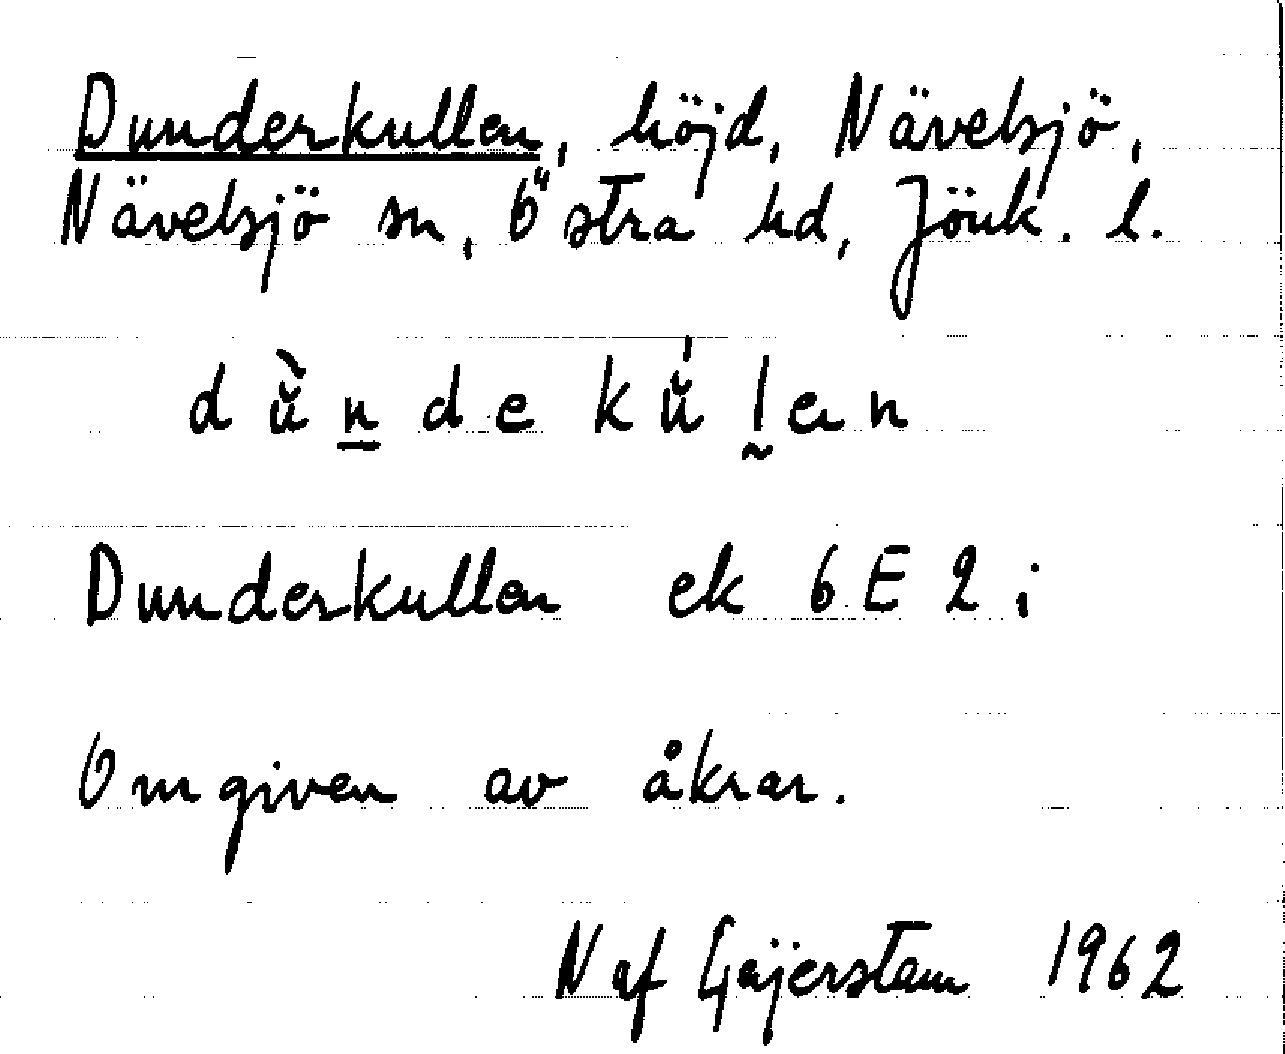 Dunderkullen, höjd, Nävelsjö,
Nävelsjö sn, Östra hd, Jönk. l.
dŭ̀n̲dekŭ́l̰en
Dunderkullen ek 6E2i
Omgiven av åkrar.
N af Geijerstam 1962